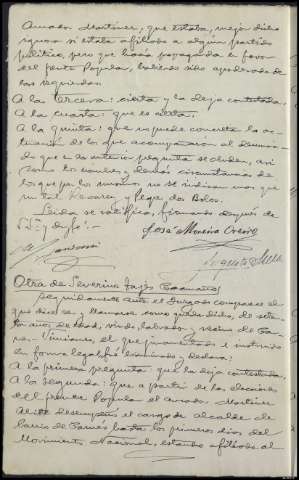 Amador Martinez, que estaba, mejor dicho
ignora si estaba afiliado a algún partido
político, pero que hacía propaganda en favor
del frente Popular, habiendo sido apoderado de
las izquierdas.
A la tercera: cierta y la deja contestada.
A la cuarta: que es cierta.
A la quinta: que no puede concretar la ac-
tuación de los que acompañaron al denuncia-
do que a la anterior pregunta se aluden, asi
como los nombres y demás circunstancias de
los que por los mismos no se indican mas que
un tal Pepe dos Bolos.
Leida se ratifica, firmando después de
S.Sª; doy fe:-
José Moreira
Otra de Severino
Seguidamente ante el Juzgado comparece el
que dice ser y llamarse como queda dicho, de sete-
ta años de edad, viudo, labrador y vecino de
el que juramentado e instruido
en forma legal fué examinado y declara:
A la primera pregunta que la deja contestada.
A la segunda: que a partir de las elecciones
del frente Popular el Amador Martinez
desempeñó el cargo de alcalde de
barrio de hasta los primeros dias del
Movimiento Nacional, estando afiliado al